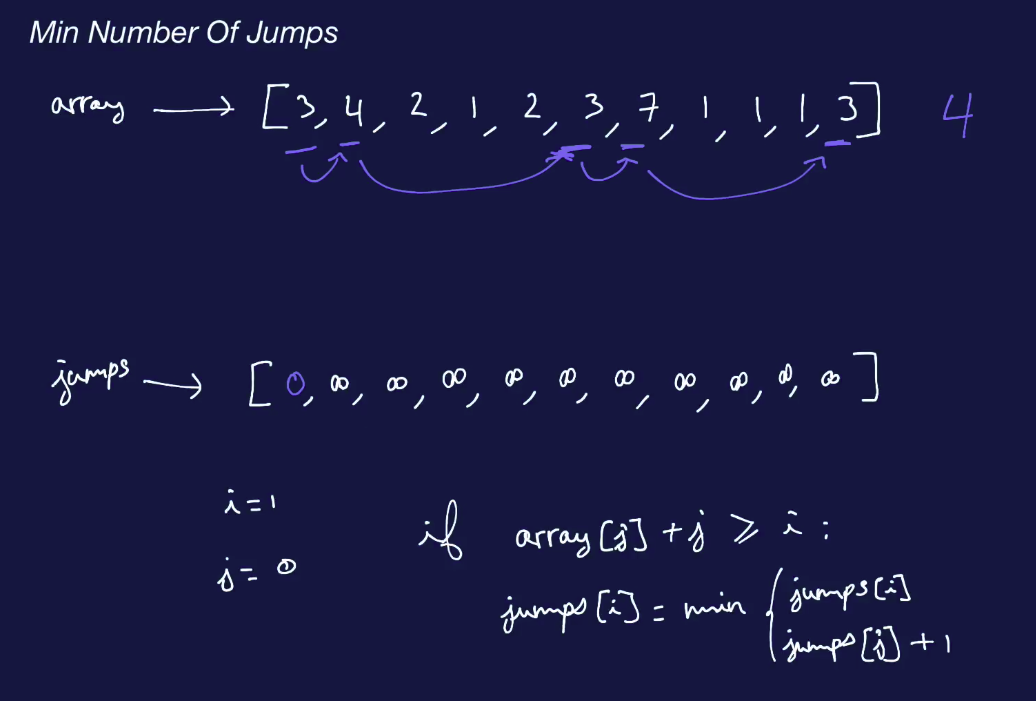 Min Number Of Jumps
array → [3, 4, 2, 1, 2, 3, 7, 1, 1, 1, 3] 4
jumps → [0, ∞, ∞, ∞, ∞, ∞, ∞, ∞, ∞, ∞, ∞]
i = 1
if array[j] + j ⩾ i :
j = 0
jumps[i] = min { jumps[i]
jumps[j] + 1